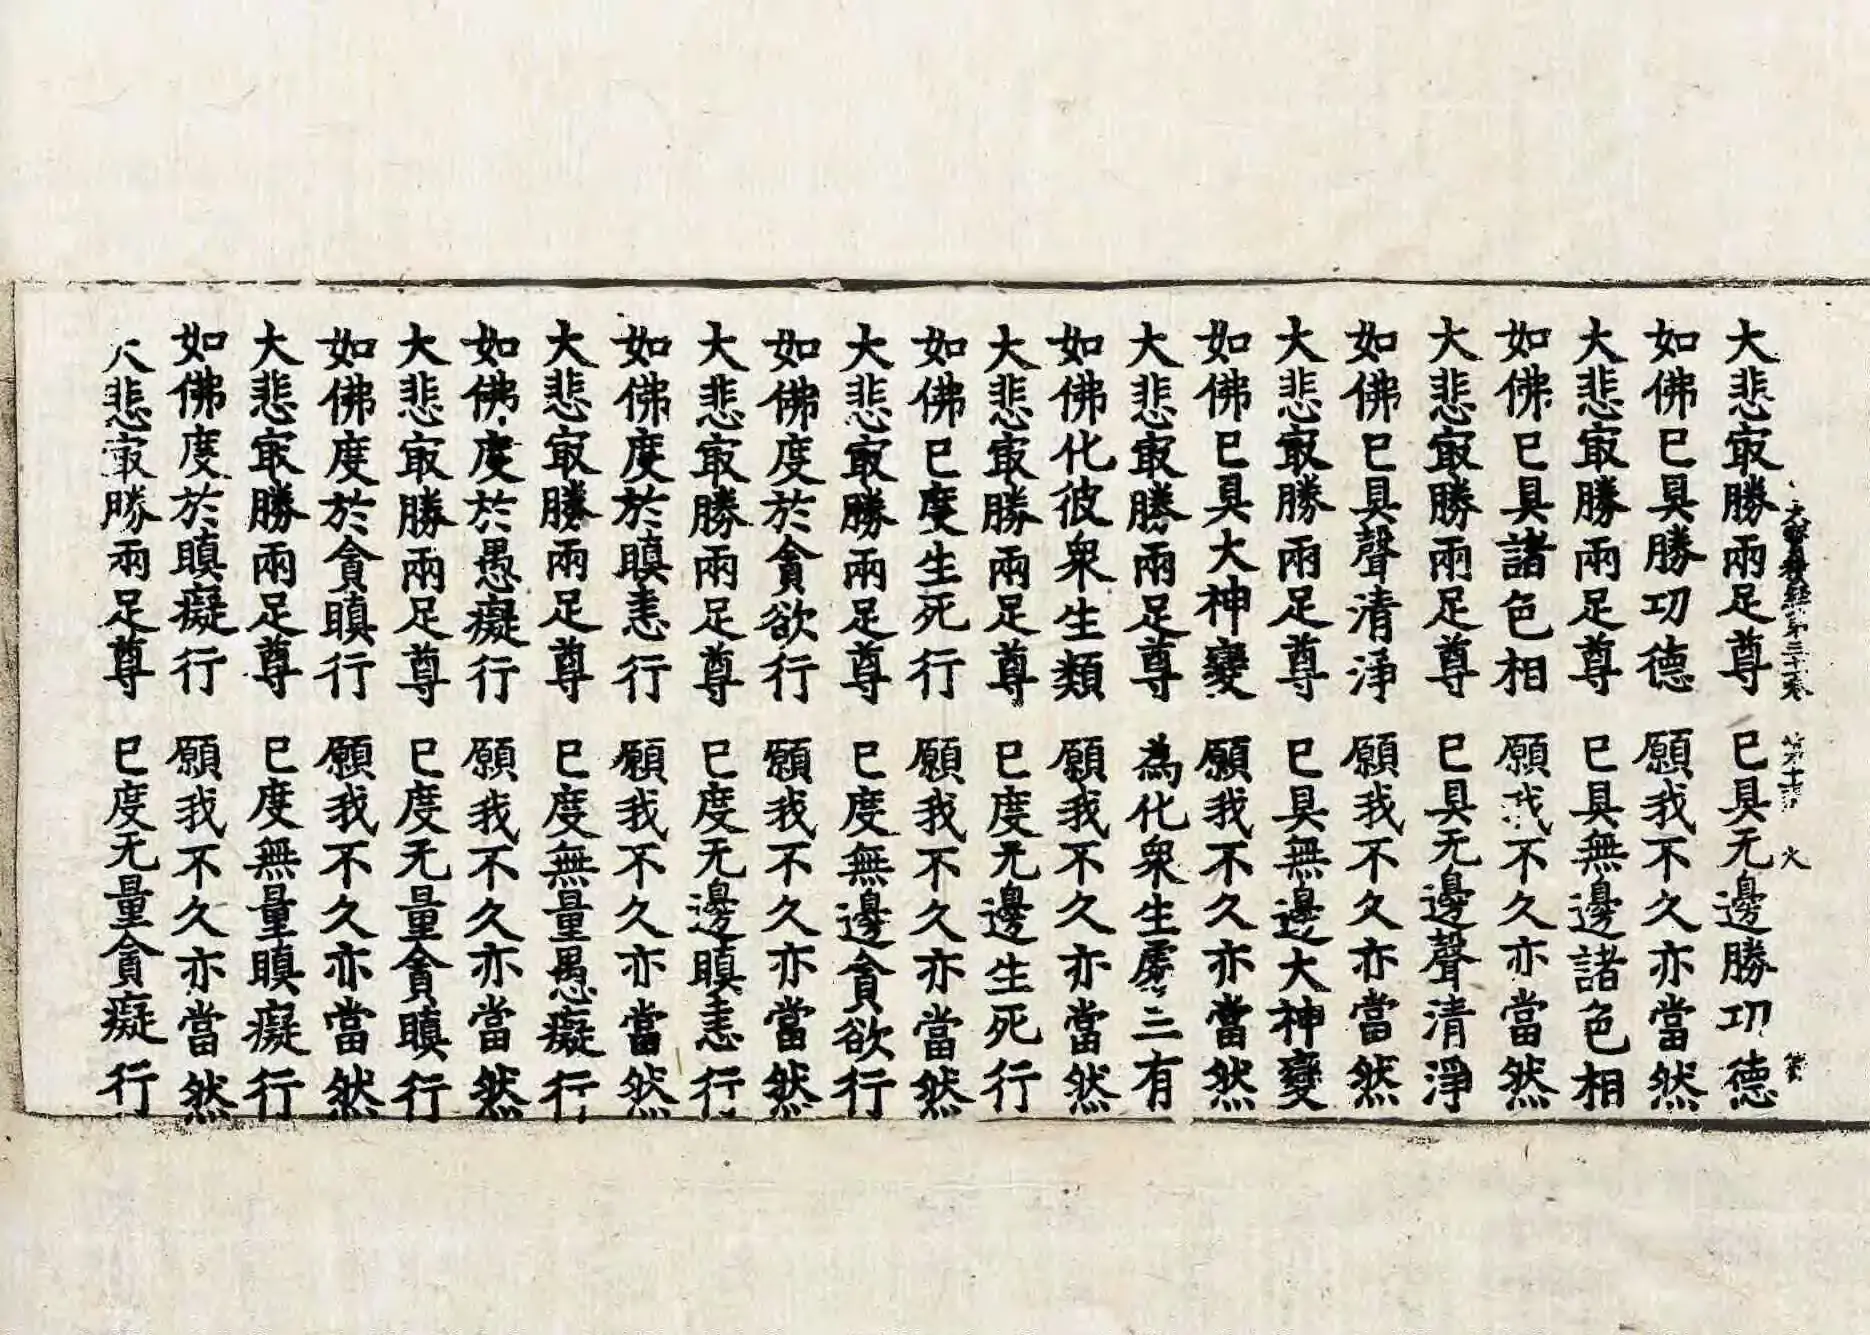 大寶積經第三十卷 第十 火
大悲㝡勝兩足尊 已具无邊勝功德
如佛已具勝功德 願我不久亦當然
大悲㝡勝兩足尊 已具無邊諸色相
如佛已具諸色相 願我不久亦當然
大悲㝡勝兩足尊 已具无邊聲清淨
如佛已具聲清淨 願我不久亦當然
大悲㝡勝兩足尊 已具無邊大神變
如佛已具大神變 願我不久亦當然
大悲㝡勝兩足尊 為化衆生處三有
如佛化彼衆生類 願我不久亦當然
大悲㝡勝兩足尊 已度无邊生死行
如佛已度生死行 願我不久亦當然
大悲㝡勝兩足尊 已度無邊貪欲行
如佛度於貪欲行 願我不久亦當然
大悲㝡勝兩足尊 已度无邊瞋恚行
如佛度於瞋恚行 願我不久亦當然
大悲㝡勝兩足尊 已度無量愚癡行
如佛度於愚癡行 願我不久亦當然
大悲㝡勝兩足尊 已度无量貪瞋行
如佛度於貪瞋行 願我不久亦當然
大悲㝡勝兩足尊 已度無量瞋癡行
如佛度於瞋癡行 願我不久亦當然
大悲㝡勝兩足尊 已度无量貪癡行